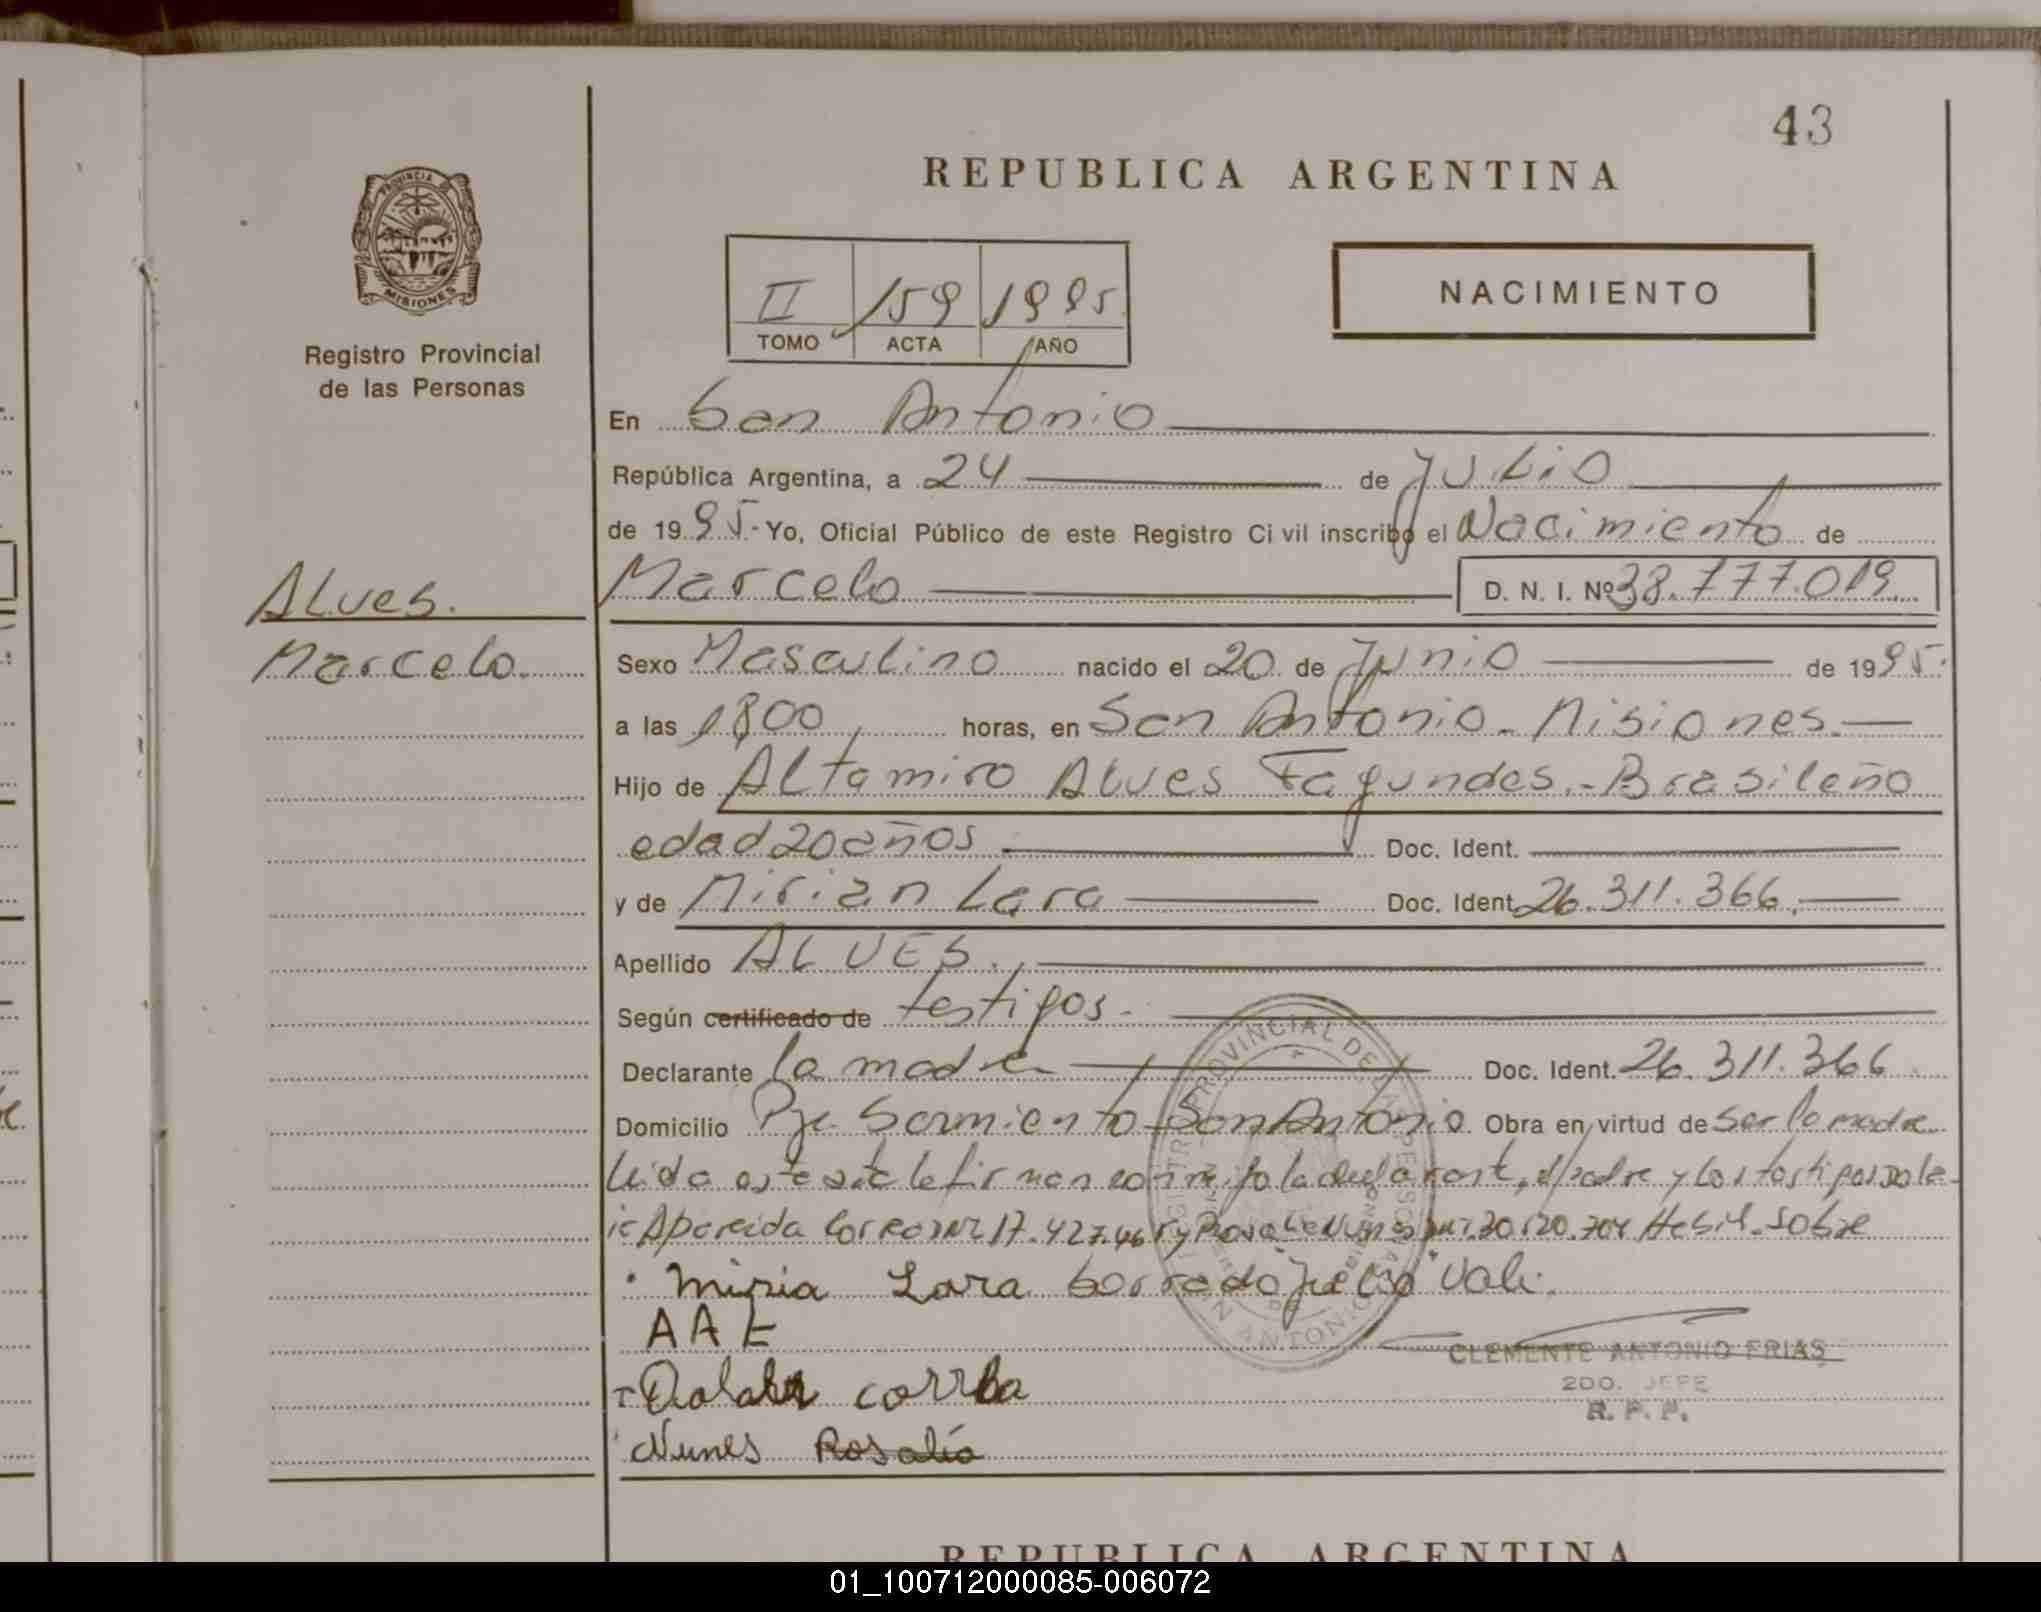 43
REPUBLICA ARGENTINA
PROVINCIA DE
MISIONES
Registro Provincial
de las Personas
II 159 1995
TOMO ACTA AÑO
NACIMIENTO
En San Antonio
República Argentina, a 24 de Julio
de 1995.- Yo, Oficial Público de este Registro Civil inscribo el Nacimiento de
Alves.
Marcelo D. N. I. Nº 38.777.019
Marcelo.
Sexo Masculino nacido el 20 de Junio de 1995.
a las 1800 horas, en San Antonio - Misiones.
Hijo de Altamiro Alves Fagundes.- Brasileño
edad 20 años Doc. Ident.
y de Mirian Lara Doc. Ident. 26.311.366.
Apellido ALVES.
Según certificado de testigos.
Declarante la madre Doc. Ident. 26.311.366.
Domicilio Pje. Sarmiento - San Antonio Obra en virtud de ser la madre
leida este acta le firman conmigo la declarante, el padre y los testigos
Aparecida Correa 17.427.46 y 30.520.704 Sobre
Miria Lara borrado Julio Vale.
A A F
correa
Nunes Rosalia
CLEMENTE ANTONIO FRIAS
2DO. JEFE
R. P. P.
REPUBLICA ARGENTINA
01_100712000085-006072